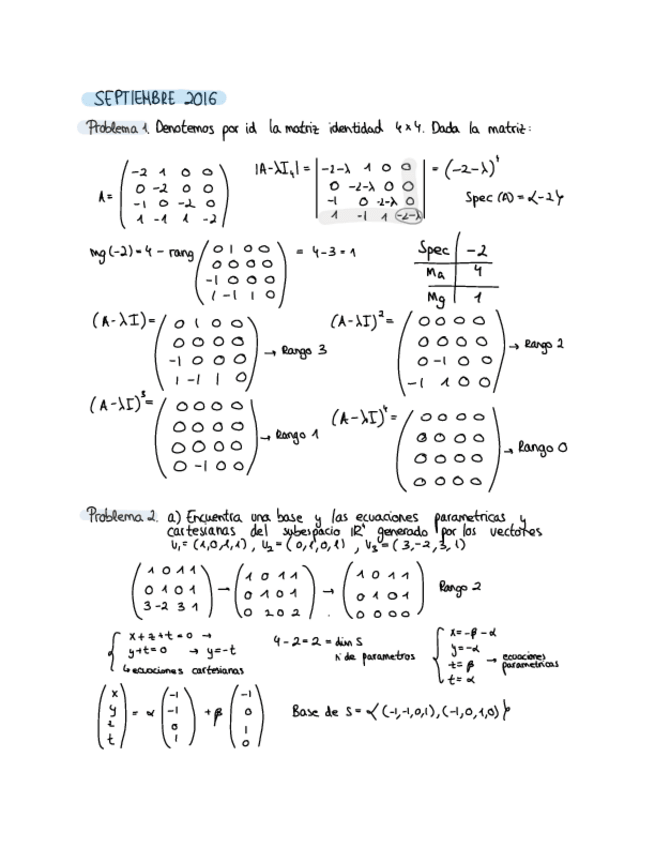 SEPTIEMBRE 2016
Problema 1. Denotemos por id la matriz identidad 4x4. Dada la matriz:
A = ( -2 1 0 0 ; 0 -2 0 0 ; -1 0 -2 0 ; 1 -1 1 -2 ) |A-λI₄| = | -2-λ 1 0 0 ; 0 -2-λ 0 0 ; -1 0 -2-λ 0 ; 1 -1 1 -2-λ | = (-2-λ)⁴
Spec (A) = {-2}
mg(-2) = 4 - rang ( 0 1 0 0 ; 0 0 0 0 ; -1 0 0 0 ; 1 -1 1 0 ) = 4-3 = 1
Spec | -2
Ma | 4
Mg | 1
(A-λI) = ( 0 1 0 0 ; 0 0 0 0 ; -1 0 0 0 ; 1 -1 1 0 ) → Rango 3
(A-λI)² = ( 0 0 0 0 ; 0 0 0 0 ; 0 -1 0 0 ; -1 1 0 0 ) → Rango 2
(A-λI)³ = ( 0 0 0 0 ; 0 0 0 0 ; 0 0 0 0 ; 0 -1 0 0 ) → Rango 1
(A-λI)⁴ = ( 0 0 0 0 ; 0 0 0 0 ; 0 0 0 0 ; 0 0 0 0 ) → Rango 0
Problema 2. a) Encuentra una base y las ecuaciones parametricas y
cartesianas del subespacio IR⁴ generado por los vectores
V₁ = (1,0,1,1), V₂ = (0,1,0,1), V₃ = (3,-2,3,1)
( 1 0 1 1 ; 0 1 0 1 ; 3 -2 3 1 ) → ( 1 0 1 1 ; 0 1 0 1 ; 0 2 0 2 ) → ( 1 0 1 1 ; 0 1 0 1 ; 0 0 0 0 ) Rango 2
{ x+z+t=0 →
y+t=0 → y=-t
↳ ecuaciones cartesianas
4-2=2 = dim S
nº de parametros
{ x=-β-α
y=-α
z=β
t=α
→ ecuaciones
parametricas
( x ; y ; z ; t ) = α ( -1 ; -1 ; 0 ; 1 ) + β ( -1 ; 0 ; 1 ; 0 ) Base de S = {(-1,-1,0,1),(-1,0,1,0)}